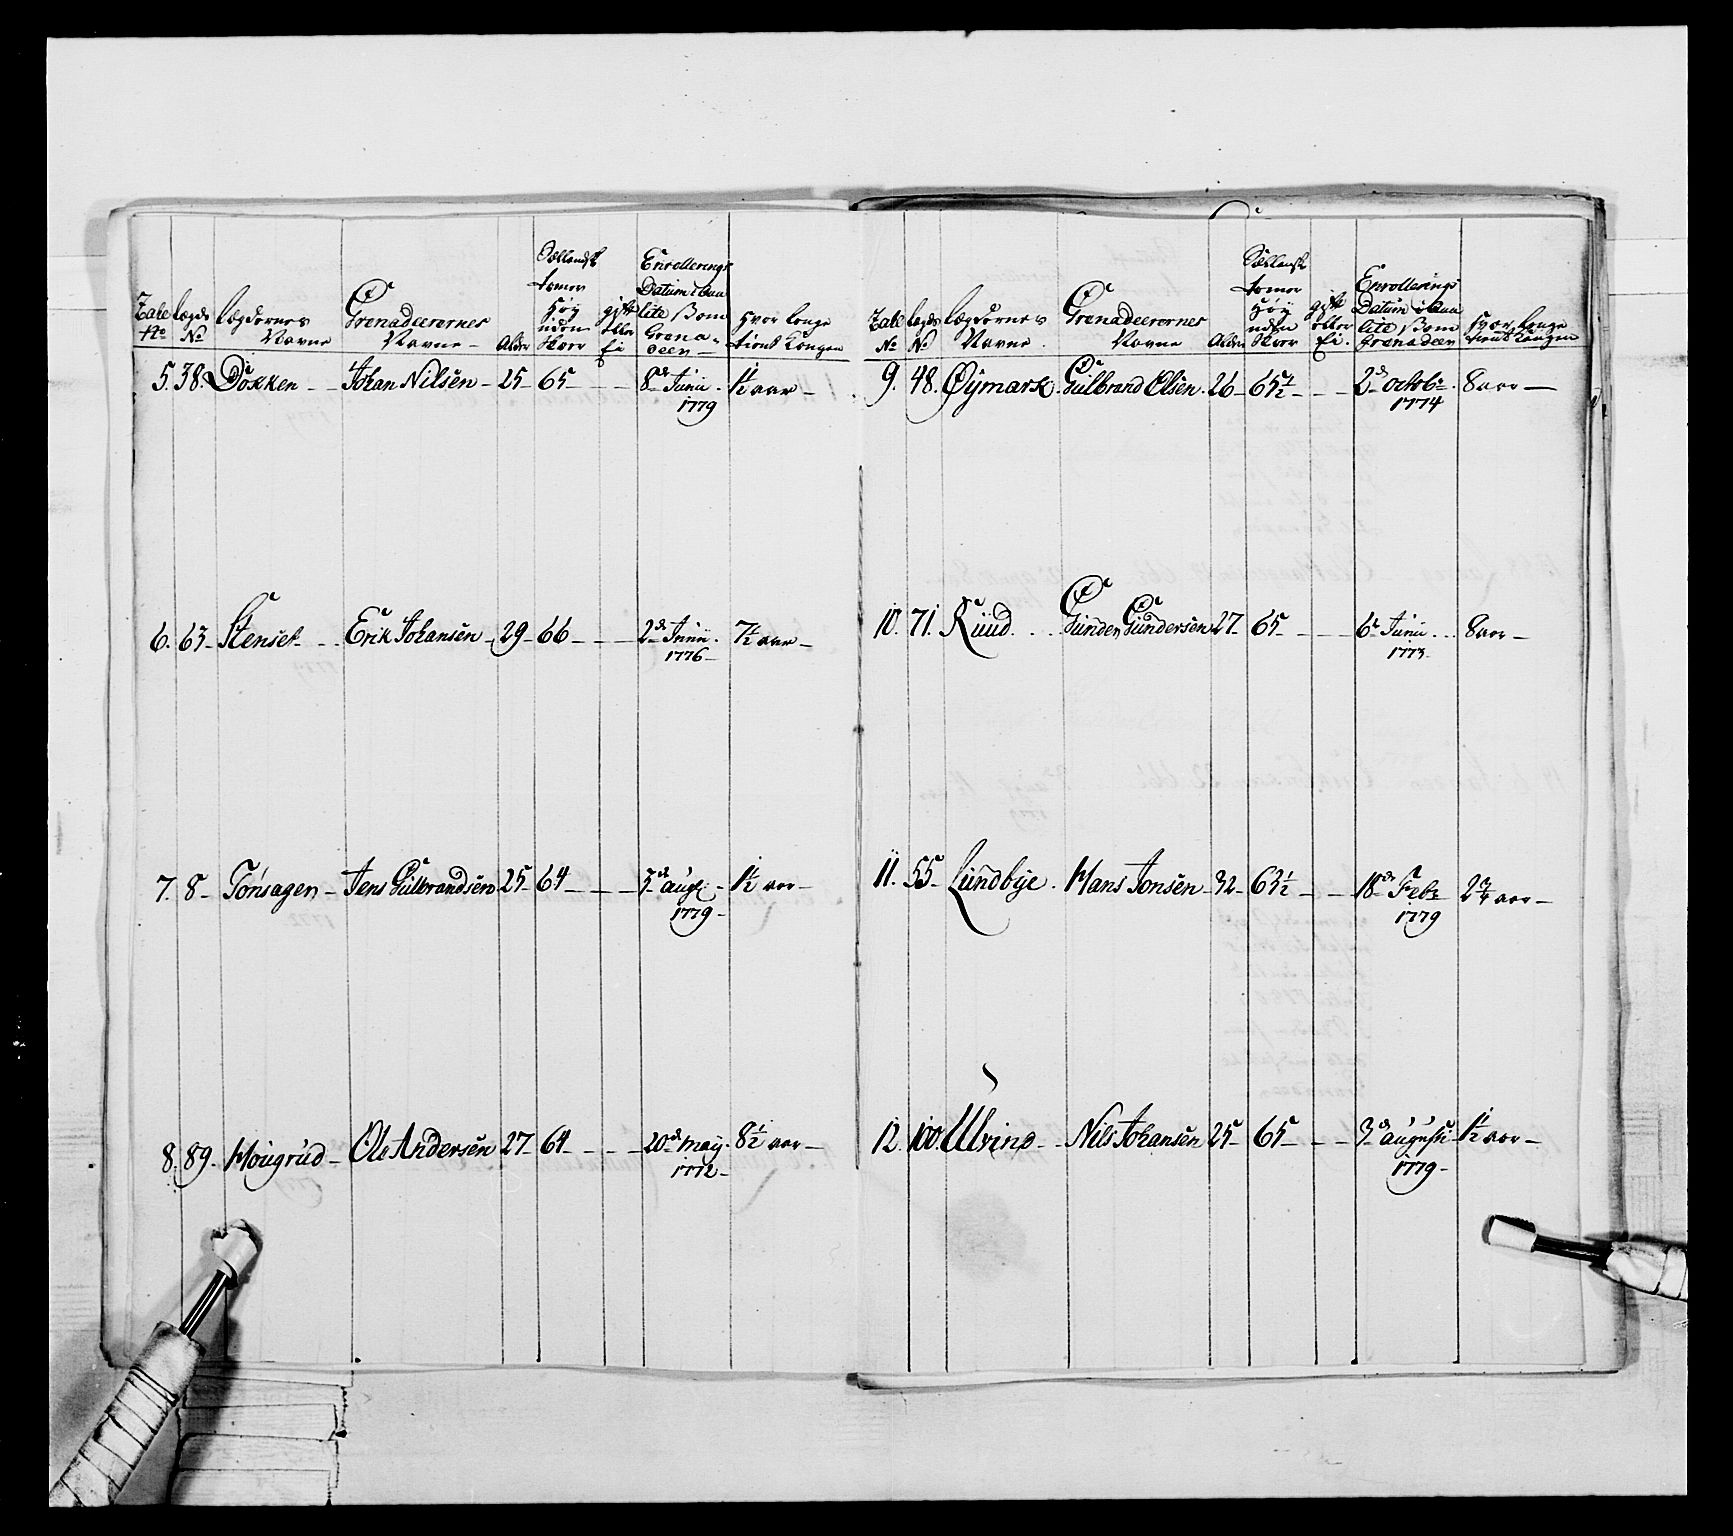 Tale No | Lægds No | Lægdernes Navne | Grenadeerernes Navne | Alder | Sællandsk tomer Høy uden Skoer | gift eller Ei | Enrollerings Datum i Qualite som Grenadeer | Hvor lenge tient Kongen
5. 38. Dokken - Johan Nilsen - 25 - 65 - - - 8de Junii 1779 1½ aar -
6. 63 - Stenset - - Erik Johansen - 29 - 66 - - - 2de Junii 1776 - 7½ aar -
7. 8 - Tonsagen - Jens Gulbrandsen 25 - 64 - - - 7de augt: 1779 - 1½ aar -
8. 89. Hougrud - Ole Andersen 27 - 64 - - - 20de maij. 1772 - 8½ aar -
Tale No | Lægds No | Lægdernes Navne | Grenadeerernes Navne | Alder | Sællansk tomer Høy uden Skoer | gift eller Ei. | Enrollerings Datum i Qualite som Grenadeer | Hvor lenge tient Kongen
9. 48. Øÿmark. Gulbrand Olsen. 26 - 65½ - - - 2de octobr. 1774 8 aar -
10. 71. Ruud. . . . Gunder Gundersen 27 - 65 - - - 6te Junii . . . 1773. 8 aar -
11. 55 - Lundbÿe. Hans Jonsen - 32 - 63½ - - 18de Febr 1779 2¾ aar -
12. 100. Ulvind - - Nils Johansen 25 - 65 - - - 3de augusti 1779 - 1½ aar -